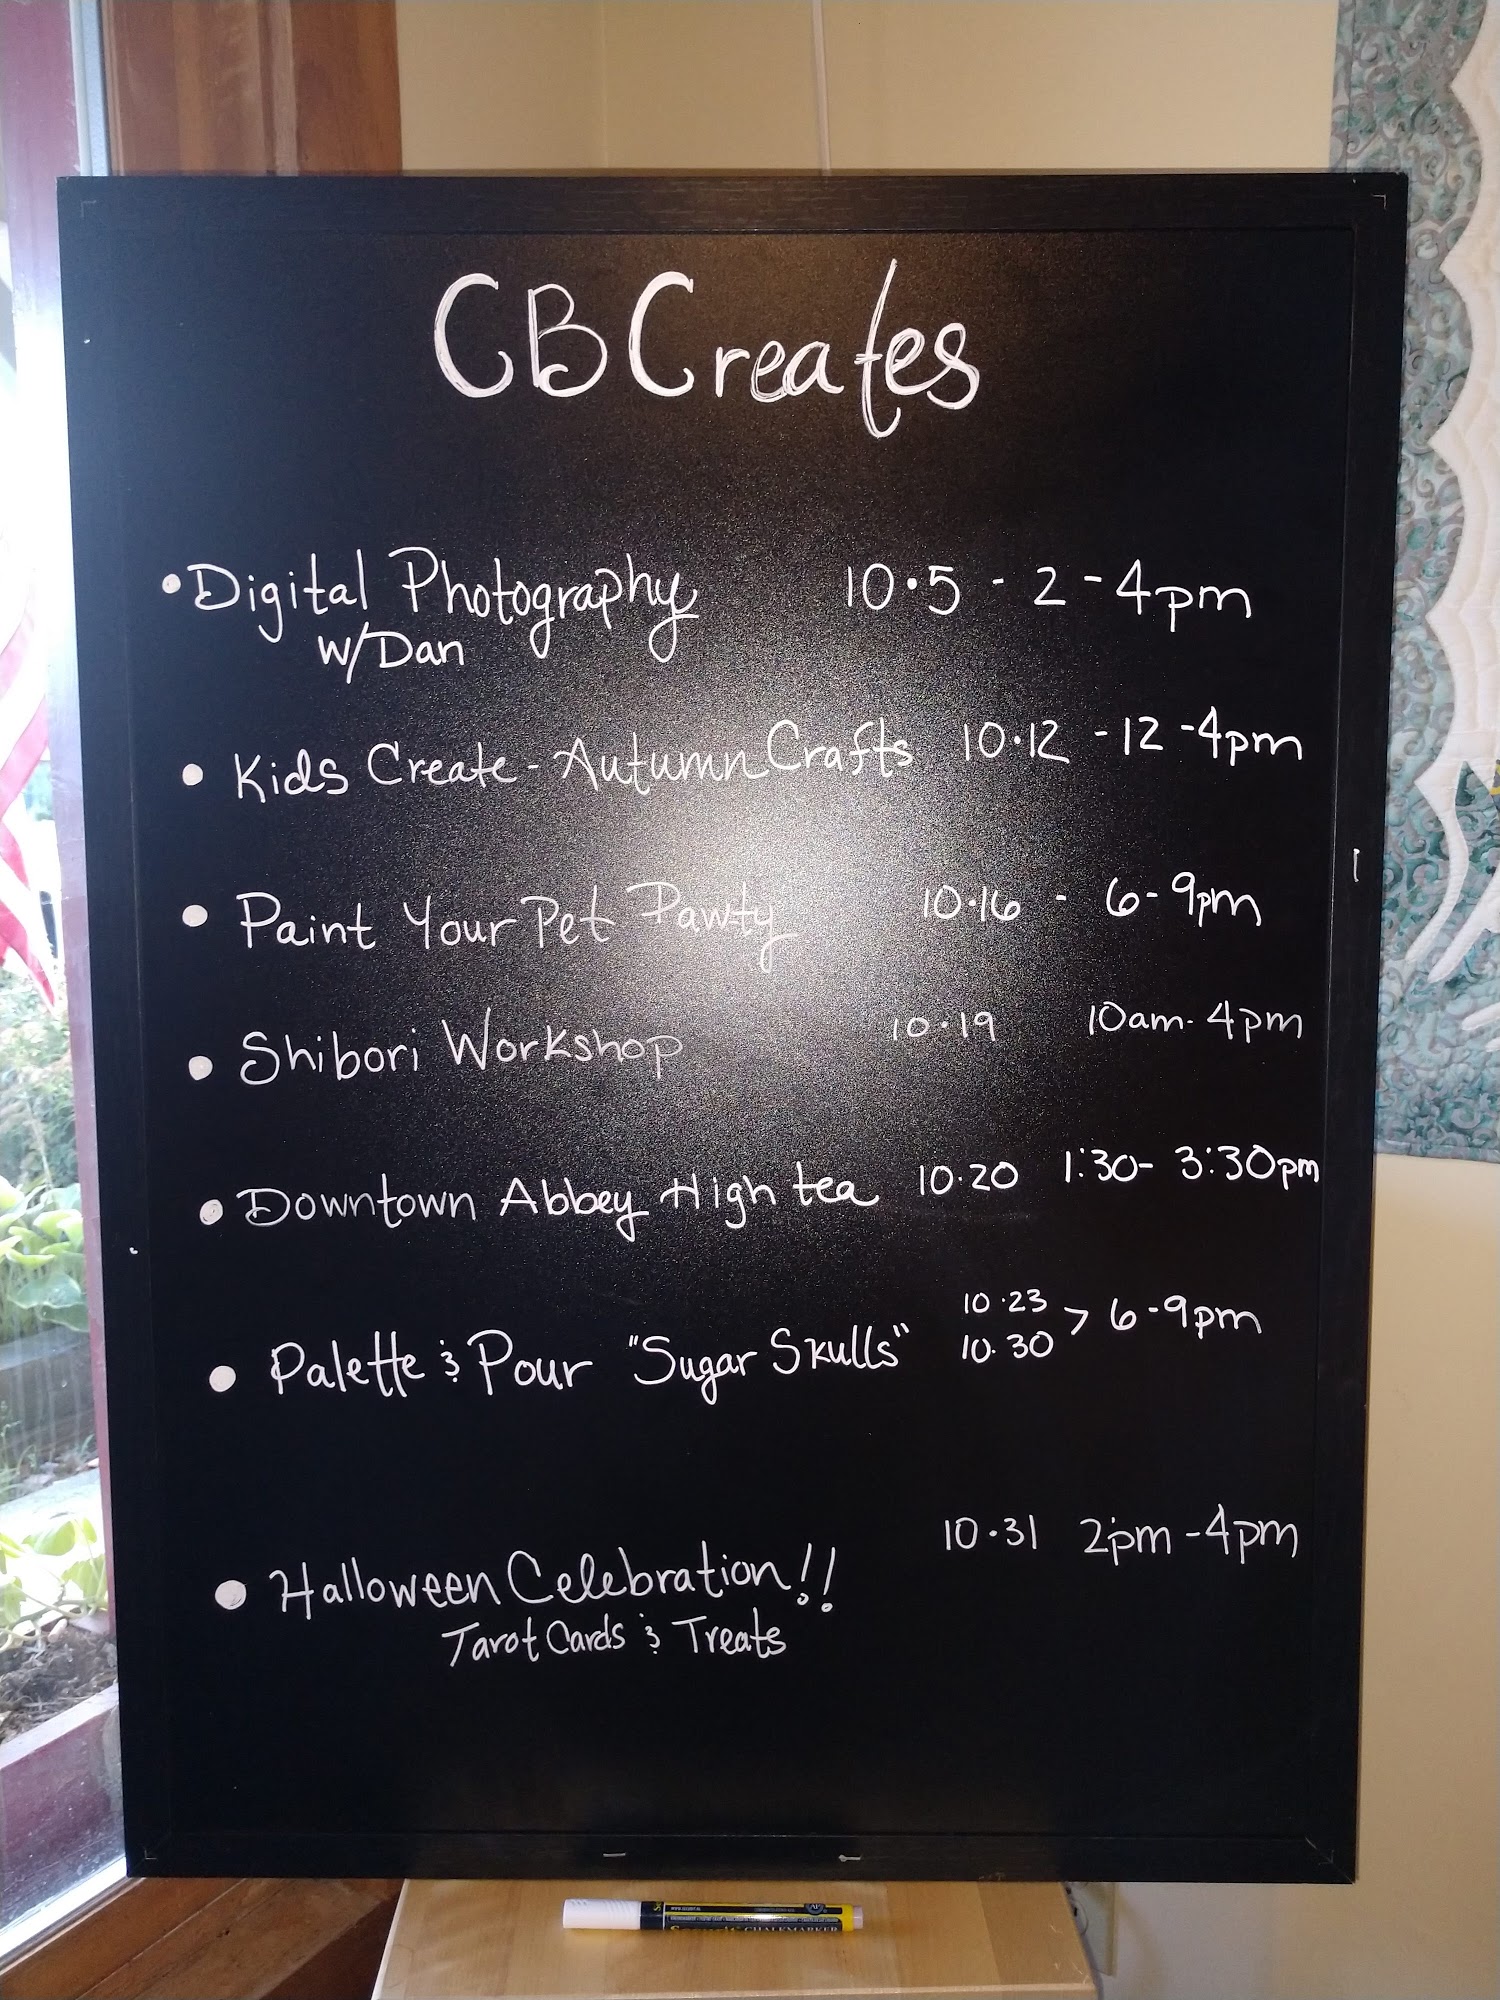 CBCreates
• Digital Photography 10·5 - 2 - 4pm
w/Dan
• Kids Create - Autumn Crafts 10·12 - 12 - 4pm
• Paint Your Pet Pawty 10·16 - 6 - 9pm
• Shibori Workshop 10·19 10am - 4pm
• Downtown Abbey High tea 10·20 1:30 - 3:30pm
• Palette & Pour "Sugar Skulls" 10·23 > 6 - 9pm
10·30
• Halloween Celebration!! 10·31 2pm - 4pm
Tarot Cards & Treats
CHALKMARKER